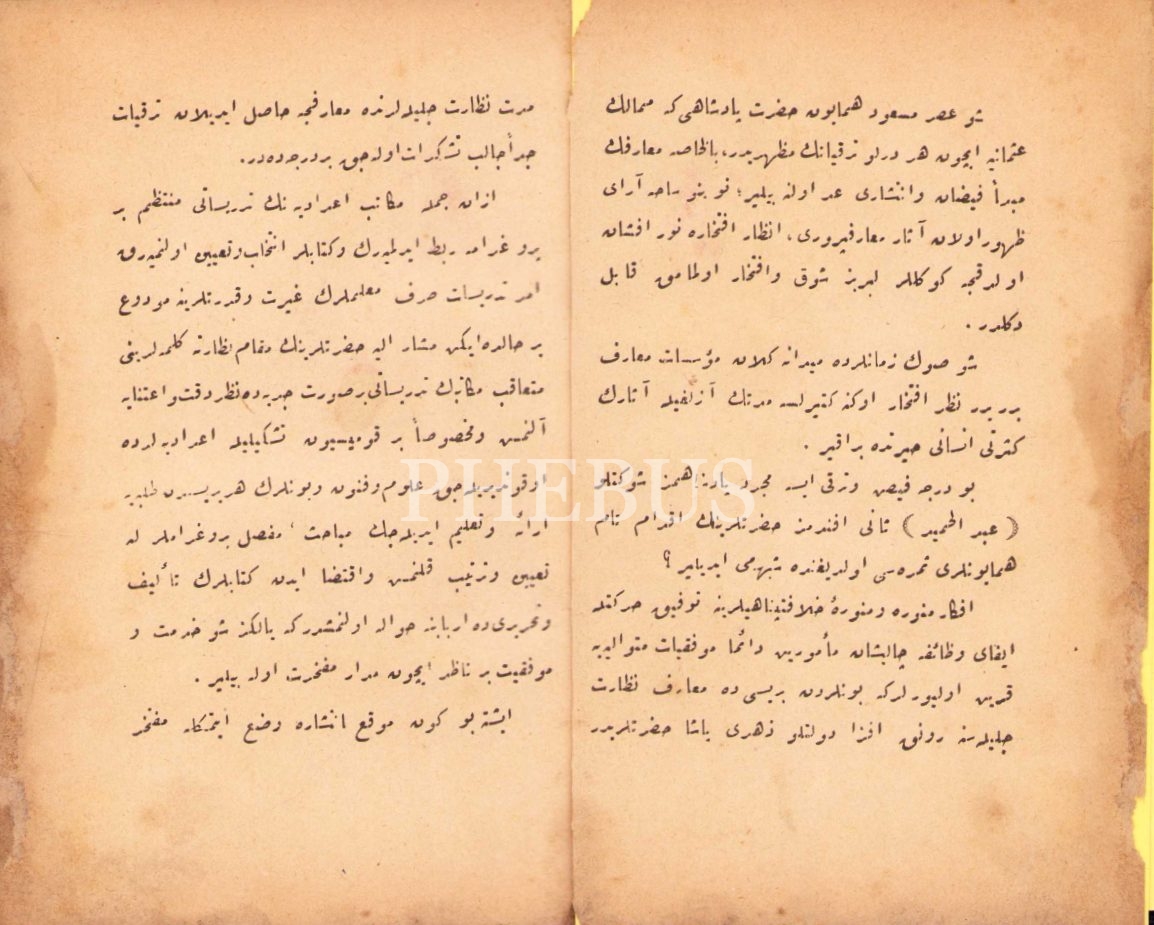 شو عصر مسعود همايون حضرت پادشاهى كه ممالك
عثمانيه ايچون هر درلو ترقياتك مظهريدر، بالخاصه معارفك
مبدأ فيضان وانتشارى عد اولنه بيلير؛ نو بنو ساحه آراى
ظهور اولان آثار معارفپرورى، انظار افتخاره نور افشان
اولدقجه كوكللر لبريز شوق وافتخار اولمامق قابل
دكلدر.
شو صوك زمانلرده ميدانه كلان مؤسسات معارف
برر برر نظر افتخار اوكنه كتيرلسه مدتك آزلغيله آثارك
كثرتى انسانى حيرتده براقير.
بو درجه فيض وترقى ايسه مجرد پادشاهمز شوكتلو
(عبد الحميد) ثانى افندمز حضرتلرينك اقدام تام
همايونلرى ثمره سى اولديغنده شبهه مى ايديلير؟
افكار منوره ومنورهٔ خلافتپناهيلرينه توفيق حركتله
ايفاى وظائفه چاليشان مأمورين دائما موفقيات متواليه يه
قرين اوليورلركه بونلردن بريسى ده معارف نظارت
جليله سنه رونق افزا دولتلو زهدى پاشا حضرتلريدر
مدت نظارت جليله لرنده معارفجه حاصل ايديلان ترقيات
جداً جالب تشكرات اوله جق بر درجه ده در.
ازان جمله مكاتب اعداديه نك تدريساتى منتظم بر
پروغرامه ربط ايدلميه رك وكتابلر انتخاب وتعيين اولنميه رق
امر تدريسات صرف معلملرك غيرت وقدرتلرينه مودوع
بر حالده ايكن مشار اليه حضرتلرينك مقام نظارته كلمه لرينى
متعاقب مكاتبك تدريساتى بر صورت جديده ده نظر دقت واعتنايه
آلنمش ومخصوصاً بر قوميسيون تشكيليله اعداديه لرده
اوقوتديريله جق علوم وفنون وبونلرك هر بريسندن طلبه يه
ارائه وتعليم ايديله جك مباحث، مفصل پروغراملر له
تعيين وترتيب قلنمش واقتضا ايدن كتابلرك تأليف
وتحريرى ده اربابنه حواله اولنمشدركه يالكز شو خدمت و
موفقيت بر ناظر ايچون مدار مفخرت اوله بيلير.
ايشته بو كون موقع انتشاره وضع ايتمكله مفتخر
PHEBUS